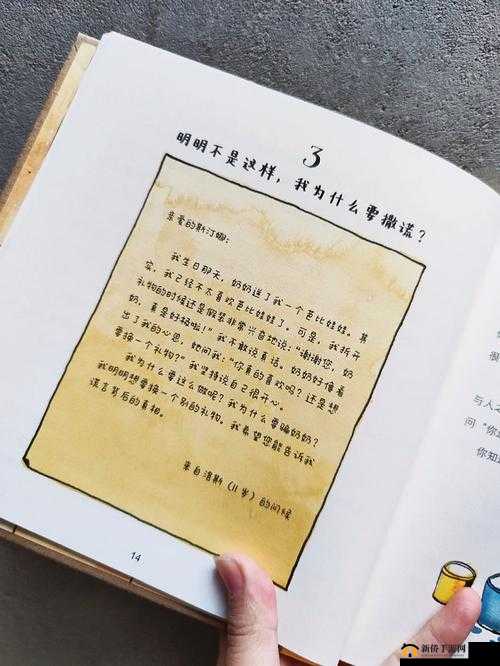 3
明明不是这样，我为什么要撒谎？
亲爱的斯汀娜：
我生日那天，奶奶送了我一个芭比娃娃。其
实，我已经不太喜欢芭比娃娃了。可是，我拆开
礼物的时候还是假装非常兴奋地说：“谢谢您，奶
奶，真是好极啦！”我不敢说真话。奶奶好像看
出了我的心思，她问我：“你真的喜欢吗？还是想
要换一个礼物？”我坚持说自己很开心。
我为什么要这么做呢？我为什么要骗奶奶？
我明明想要换一个别的礼物。我希望您能告诉我
谎言背后的真相。
来自洁斯（11岁）的问候
14
与人
问“你
你知
新侨手游网